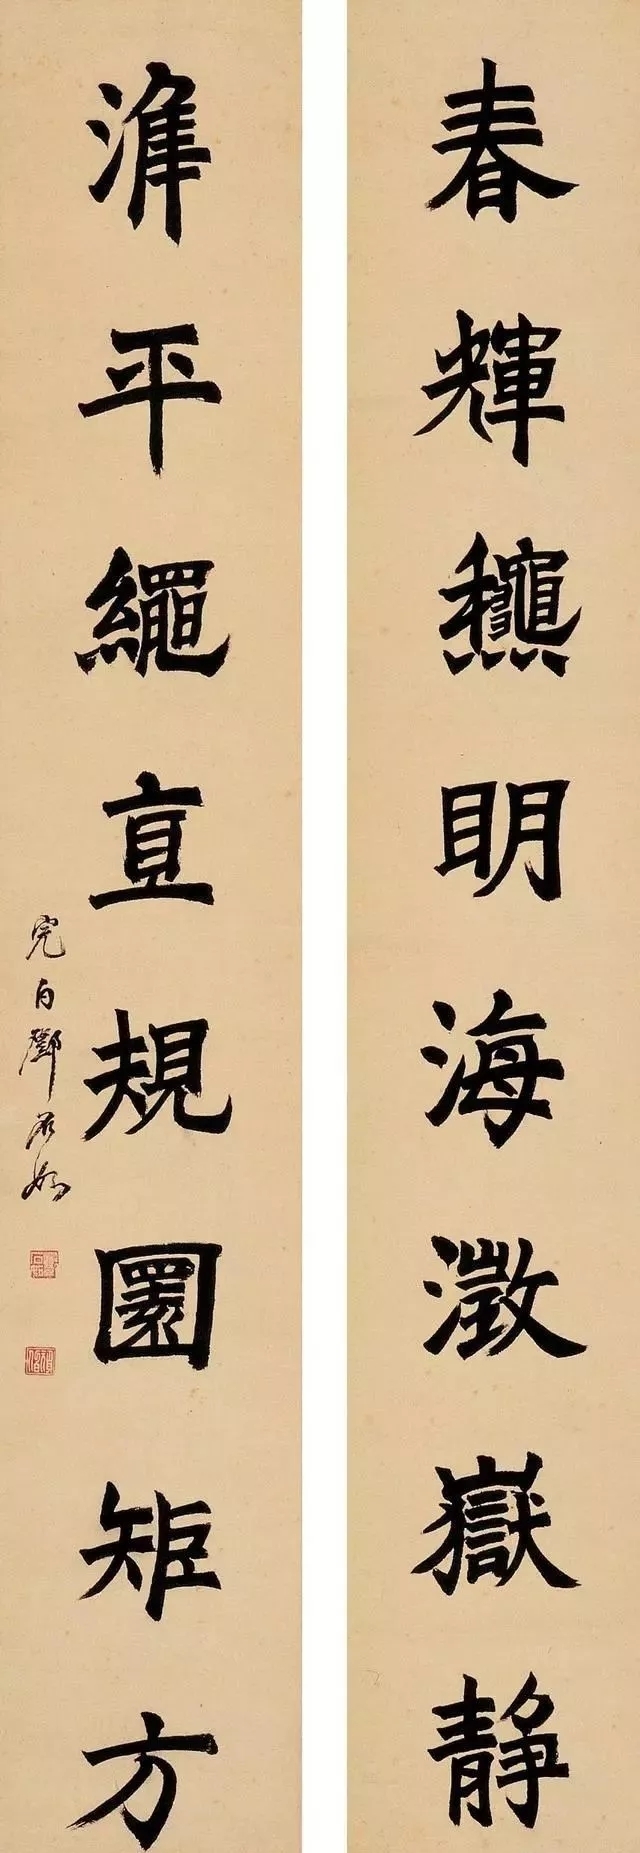 春輝龝眀海澂嶽靜
準平繩直規圜矩方
完白鄧石如